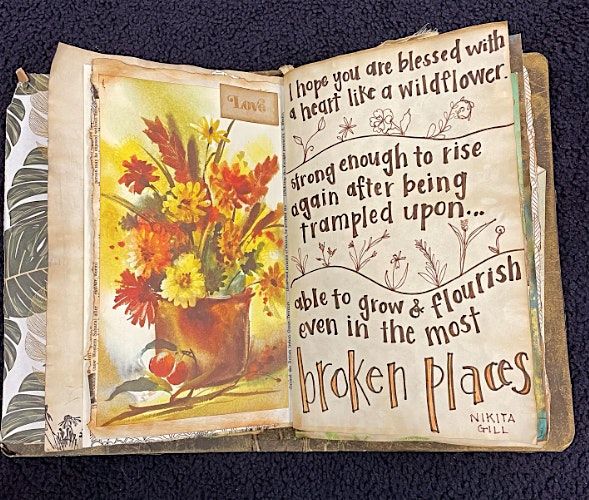 Love
I hope you are blessed with
a heart like a wildflower.
strong enough to rise
again after being
trampled upon...
able to grow & flourish
even in the most
broken places
NIKITA
GILL